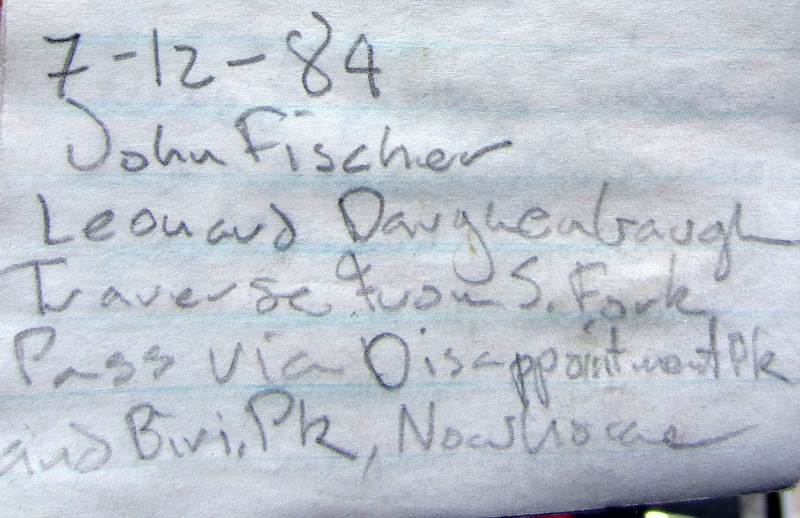 7-12-84
John Fischer
Leonard Daughenbaugh
Traverse from S. Fork
Pass via Disappointment Pk
and Bivi. Pk,